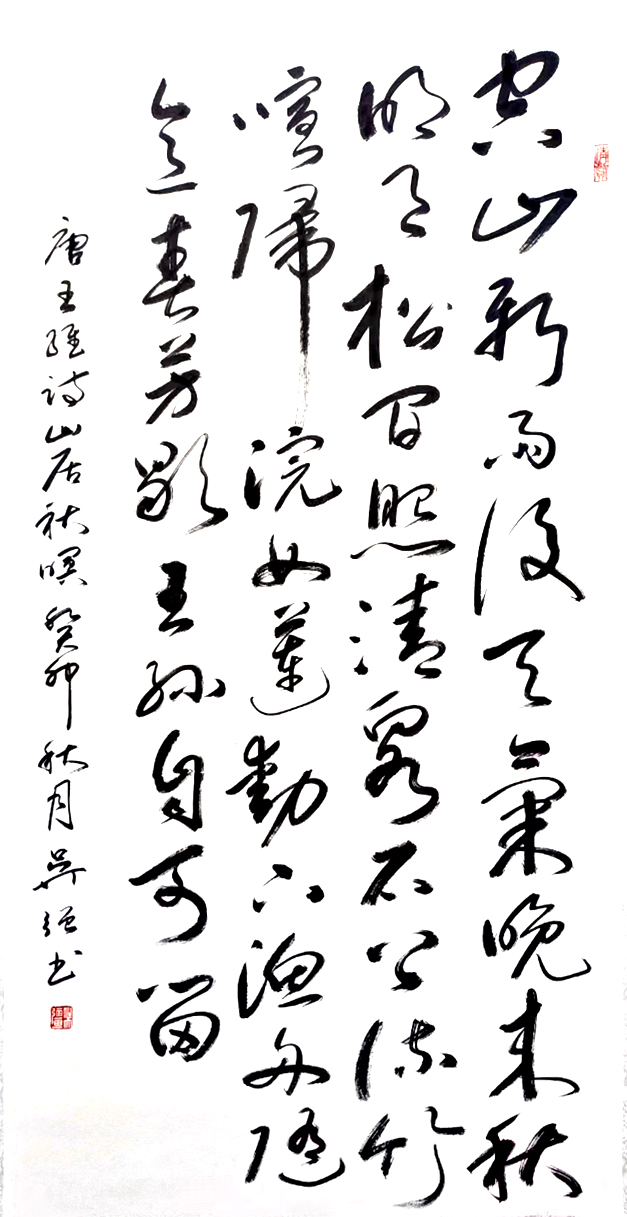 空山新雨後天氣晚來秋
明月松間照清泉石上流竹
喧歸浣女蓮動下漁舟隨
意春芳歇王孫自可留
唐王維詩山居秋暝癸卯秋月吳強書